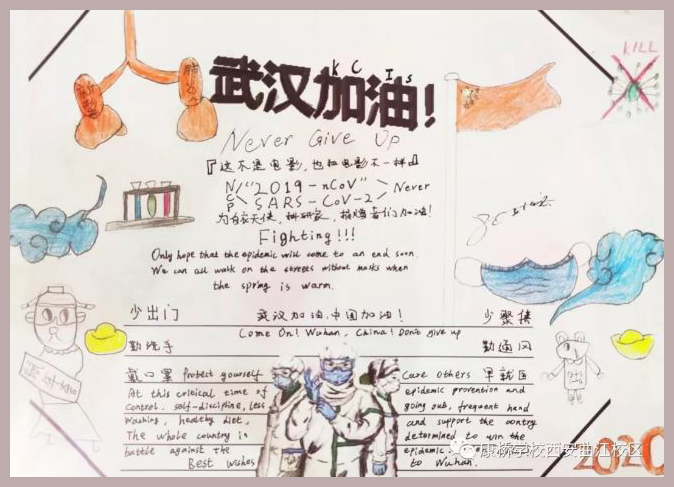 KCIS
武汉加油!
KILL
Never Give Up
『这不是电影,也和电影不一样』
NCP "2019-nCoV" Never
SARS-CoV-2
为白衣天使,科研家,捐赠者们加油!
Fighting!!!
Only hope that the epidemic will come to an end soon.
We can all walk on the streets without masks when
the spring is warm.
少出门 武汉加油,中国加油! 少聚集
Come On! Wuhan, China! Don't give up
勤洗手 勤通风
戴口罩 Protect yourself
At this critical time of
control, self-discipline, less
washing, healthy diet,
The whole country in
battle against the
Best wishes
Care others 早就医
epidemic prevention and
going out, frequent hand
and support the contry
determined to win the
epidemic.
to Wuhan.
康桥学校西安曲江校区
2020